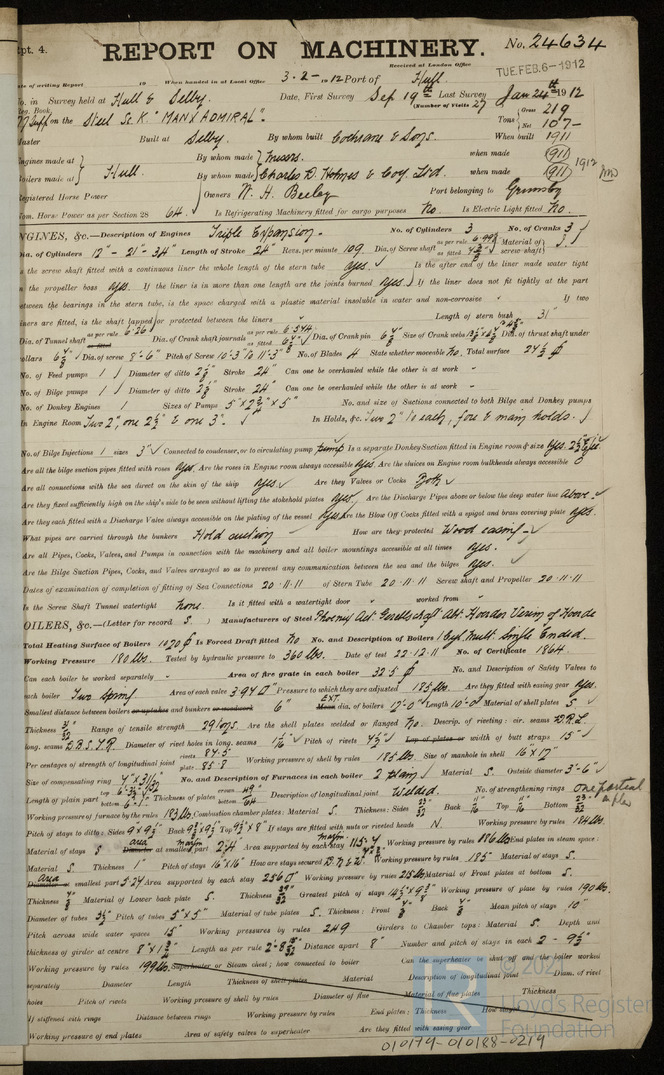 Rpt. 4.
REPORT ON MACHINERY. No. 24634
Received at London Office
TUE. FEB. 6 - 1912
Date of writing Report 19 When handed in at Local Office 3. 2 - 1912 Port of Hull.
No. in Survey held at Hull & Selby. Date, First Survey Sep 19th Last Survey Jan 24th 1912
Reg. Book. (Number of Visits 27
on the Steel Sc. K. "MANX ADMIRAL". Tons Gross 219 Net 107
Master Built at Selby. By whom built Cochrane & Sons. When built 1911
Engines made at Hull. By whom made Messrs. when made 1911
Boilers made at By whom made Charles D. Holmes & Coy. Ltd. when made 1911 1912
Registered Horse Power Owners W. H. Beeley Port belonging to Grimsby
Nom. Horse Power as per Section 28 64 Is Refrigerating Machinery fitted for cargo purposes No. Is Electric Light fitted No.
ENGINES, &c.—Description of Engines Triple Expansion. No. of Cylinders 3 No. of Cranks 3
Dia. of Cylinders 12" - 21" - 34" Length of Stroke 24" Revs. per minute 109 Dia. of Screw shaft as per rule 6.99" as fitted Material of screw shaft
Is the screw shaft fitted with a continuous liner the whole length of the stern tube Yes. Is the after end of the liner made water tight
in the propeller boss Yes. If the liner is in more than one length are the joints burned Yes. If the liner does not fit tightly at the part
between the bearings in the stern tube, is the space charged with a plastic material insoluble in water and non-corrosive If two
liners are fitted, is the shaft lapped or protected between the liners Length of stern bush 31"
Dia. of Tunnel shaft as per rule 6.26 as fitted Dia. of Crank shaft journals as per rule 6.544 as fitted Dia. of Crank pin Size of Crank webs Dia. of thrust shaft under
collars Dia. of screw 8'-6" Pitch of Screw 10'-3" to 11'-3" No. of Blades 4 State whether moveable No. Total surface 24½
No. of Feed pumps 1 Diameter of ditto Stroke 24" Can one be overhauled while the other is at work
No. of Bilge pumps 1 Diameter of ditto Stroke 24" Can one be overhauled while the other is at work
No. of Donkey Engines Sizes of Pumps No. and size of Suctions connected to both Bilge and Donkey pumps
In Engine Room Two 2", one 2½" & one 3". In Holds, &c. Two 2" to each, fore & main holds.
No. of Bilge Injections 1 sizes 3" Connected to condenser, or to circulating pump pump Is a separate Donkey Suction fitted in Engine room & size Yes.
Are all the bilge suction pipes fitted with roses Yes. Are the roses in Engine room always accessible Yes. Are the sluices on Engine room bulkheads always accessible
Are all connections with the sea direct on the skin of the ship Yes. Are they Valves or Cocks Both
Are they fixed sufficiently high on the ship's side to be seen without lifting the stokehold plates Yes. Are the Discharge Pipes above or below the deep water line Above.
Are they each fitted with a Discharge Valve always accessible on the plating of the vessel Yes. Are the Blow Off Cocks fitted with a spigot and brass covering plate Yes.
What pipes are carried through the bunkers Hold suction How are they protected Wood casing.
Are all Pipes, Cocks, Valves, and Pumps in connection with the machinery and all boiler mountings accessible at all times Yes.
Are the Bilge Suction Pipes, Cocks, and Valves arranged so as to prevent any communication between the sea and the bilges Yes.
Dates of examination of completion of fitting of Sea Connections 20.11.11 of Stern Tube 20.11.11 Screw shaft and Propeller 20.11.11
Is the Screw Shaft Tunnel watertight None. Is it fitted with a watertight door worked from
BOILERS, &c.—(Letter for record S.) Manufacturers of Steel Phoenix Act. Gesellschaft Abt. Hoerder Verein of Hoerde
Total Heating Surface of Boilers 1020 Is Forced Draft fitted No No. and Description of Boilers 1 Cyl. Mult. Single Ended.
Working Pressure 180 lbs. Tested by hydraulic pressure to 360 lbs. Date of test 22.12.11 No. of Certificate 1864.
Can each boiler be worked separately Area of fire grate in each boiler 32.5 No. and Description of Safety Valves to
each boiler Two Spring Area of each valve 3.94 Pressure to which they are adjusted 185 lbs. Are they fitted with easing gear Yes.
Smallest distance between boilers or uptakes and bunkers or woodwork 6" EXT Mean dia. of boilers 12'-0" Length 10'-0" Material of shell plates S.
Thickness Range of tensile strength 29 tons Are the shell plates welded or flanged No. Descrip. of riveting: cir. seams D.R.L.
long. seams D.B.S.T.R. Diameter of rivet holes in long. seams Pitch of rivets Lap of plates or width of butt straps 15"
Per centages of strength of longitudinal joint rivets 87.5 plate 85.8 Working pressure of shell by rules 185 lbs. Size of manhole in shell 16" x 12"
Size of compensating ring No. and Description of Furnaces in each boiler 2 plain Material S. Outside diameter 3'-6"
Length of plain part top bottom Thickness of plates crown bottom Description of longitudinal joint Welded. No. of strengthening rings One partial
Working pressure of furnace by the rules 183 lbs. Combustion chamber plates: Material S. Thickness: Sides Back Top Bottom
Pitch of stays to ditto: Sides Back Top If stays are fitted with nuts or riveted heads N. Working pressure by rules 184 lbs.
Material of stays S area Diameter at smallest part Area supported by each stay Working pressure by rules 186 lbs. End plates in steam space:
Material S. Thickness 1" Pitch of stays 16" x 16" How are stays secured D.N. & W. Working pressure by rules 185 Material of stays S.
area Diameter at smallest part 5.27 Area supported by each stay 256 Working pressure by rules Material of Front plates at bottom S.
Thickness Material of Lower back plate S. Thickness Greatest pitch of stays Working pressure of plate by rules 190 lbs.
Diameter of tubes 3½" Pitch of tubes 5" x 5" Material of tube plates S. Thickness: Front Back Mean pitch of stays 10"
Pitch across wide water spaces 15" Working pressures by rules 249 Girders to Chamber tops: Material S. Depth and
thickness of girder at centre Length as per rule Distance apart 8" Number and pitch of stays in each 2 - 9½"
Working pressure by rules 199 lbs. Superheater or Steam chest; how connected to boiler Can the superheater be shut off and the boiler worked
separately Diameter Length Thickness of shell plates Material Description of longitudinal joint Diam. of rivet
holes Pitch of rivets Working pressure of shell by rules Diameter of flue Material of flue plates Thickness
If stiffened with rings Distance between rings Working pressure by rules End plates: Thickness How stayed
Working pressure of end plates Area of safety valves to superheater Are they fitted with easing gear
010179-010188-0219
Lloyd's Register
Foundation